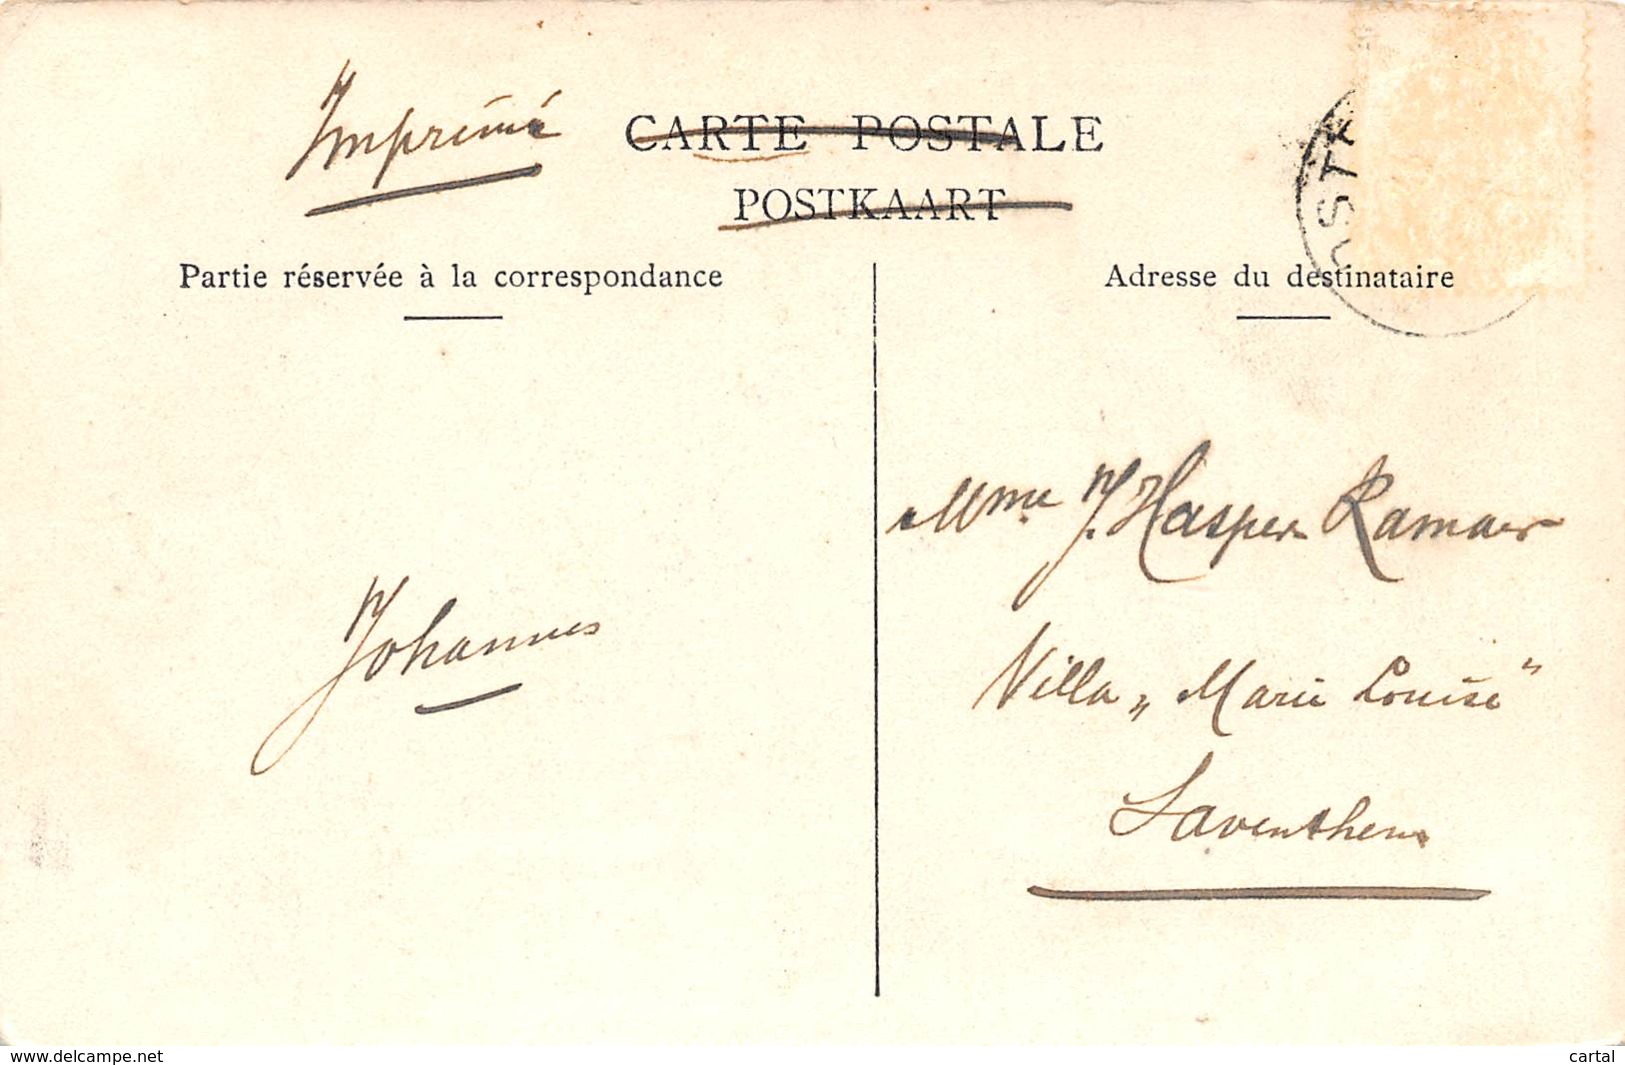 Imprimé
CARTE POSTALE
POSTKAART
Partie réservée à la correspondance
Adresse du destinataire
Mme J. Hasper Ramaer
Villa „Marie Louise"
Johannes
Saventhem
www.delcampe.net
cartal